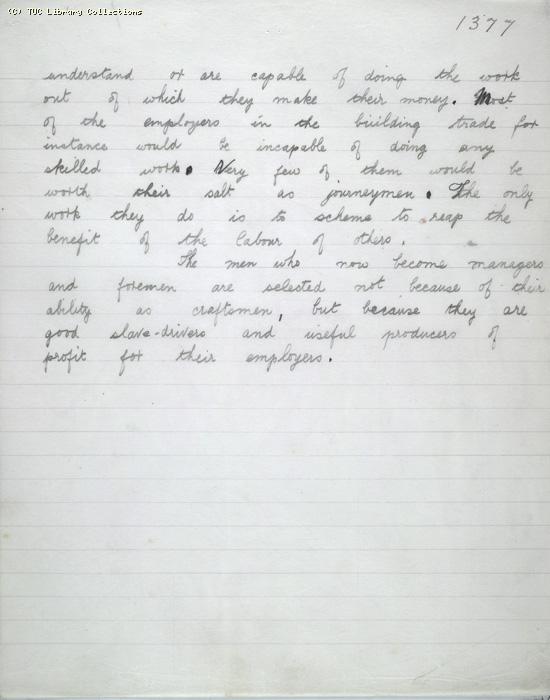 (C) TUC Library Collections
1377
understand or are capable of doing the work
out of which they make their money. Most
of the employers in the building trade for
instance would be incapable of doing any
skilled work. Very few of them would be
worth their salt as journeymen. The only
work they do is to scheme to reap the
benefit of the labour of others.
The men who now become managers
and foremen are selected not because of their
ability as craftsmen, but because they are
good slave-drivers and useful producers of
profit for their employers.